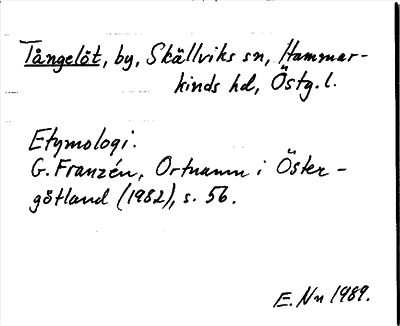 Tångelöt, by, Skällviks sn, Hammar-
kinds hd, Östg.l.
Etymologi.
G. Franzén, Ortnamn i Öster-
götland (1982), s. 56.
E. Nn 1989.